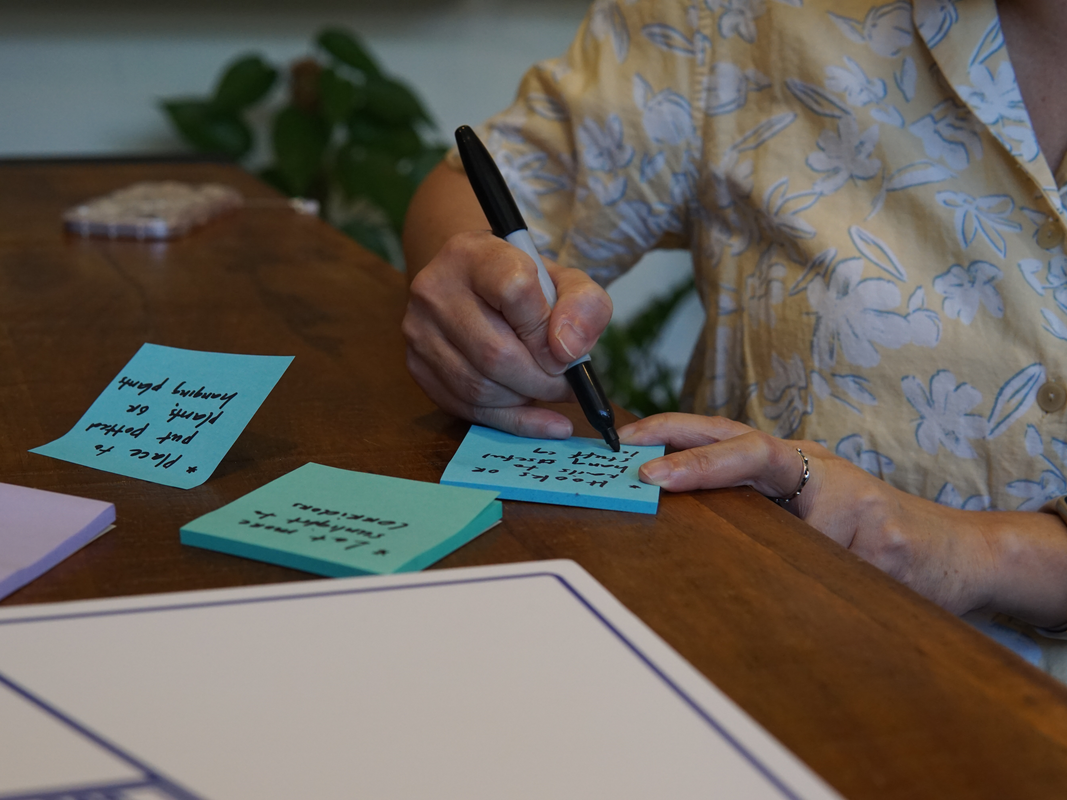 * Place to
put potted
plants, or
hanging plants
* Let more
sunlight to
corridors
* Hooks or
nails to
hang useful
stuff on